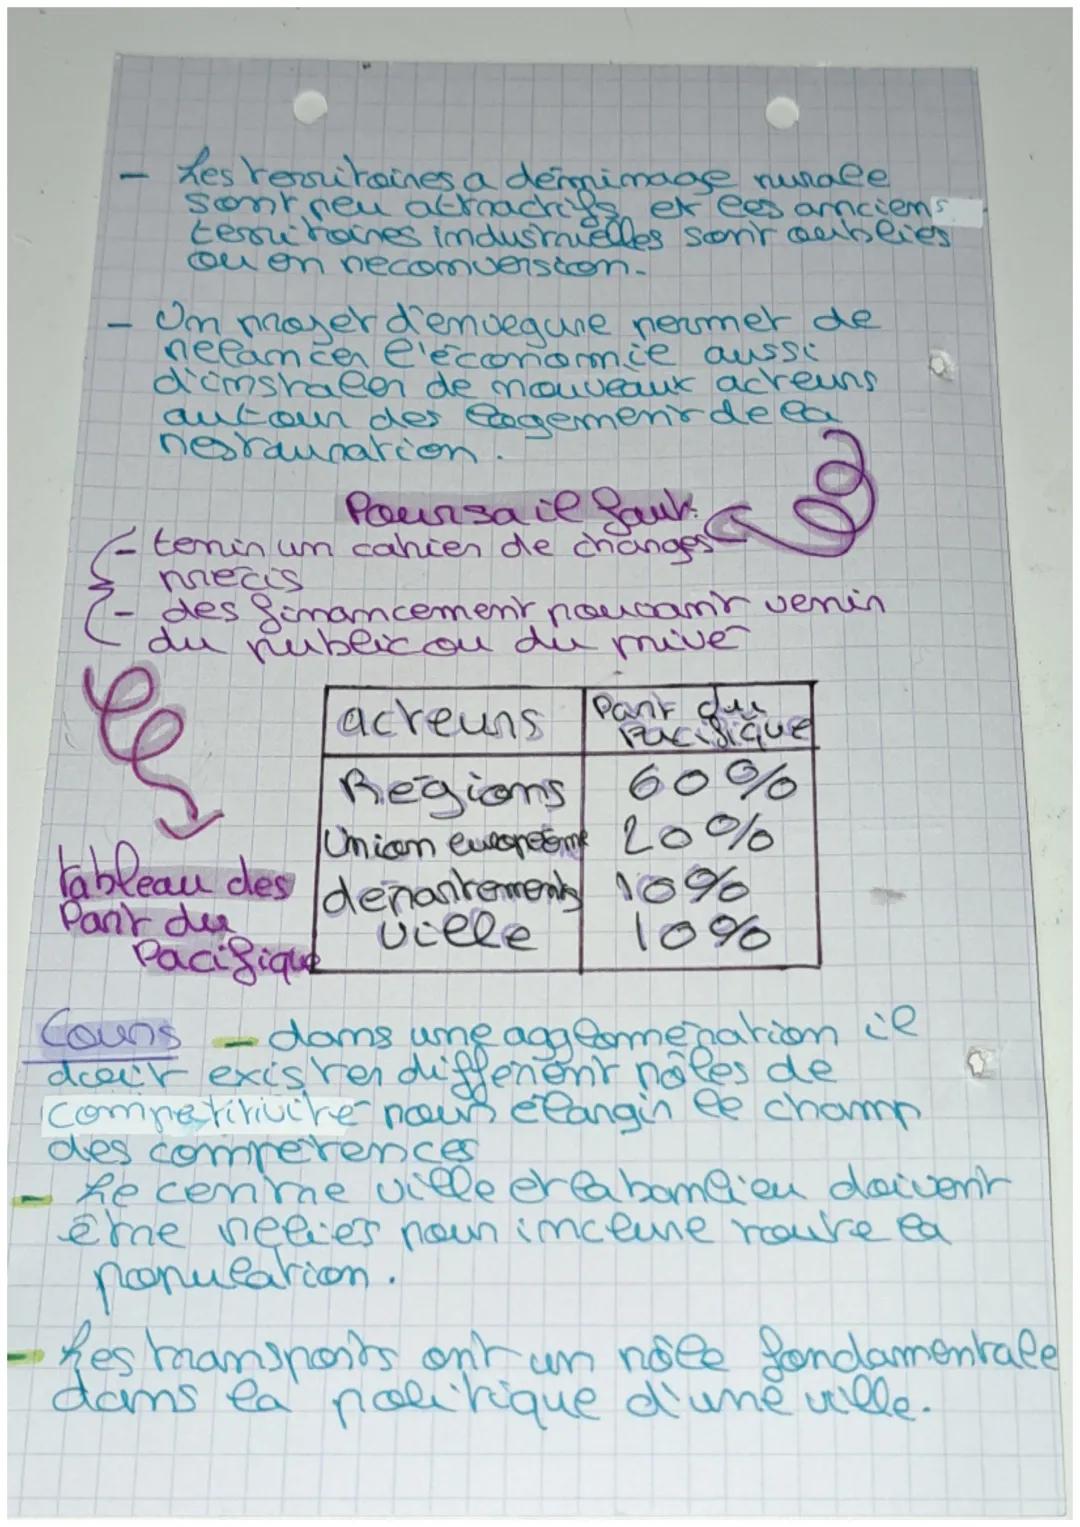 - Les territoires a dominage rurale
sont peu attractifs et les anciens
territoires industrielles sont oubliés
ou en reconversion.
- Un projet d'envegure permet de
relancer l'économie aussi
d'installer de nouveaux acteurs
autour des logement de la
restauration.
Pour sa il faut:
- tenir un cahier de charges
précis
- des financement pouvant venir
du public ou du privé
acteurs | Part du Pacifique
Régions 60%
Union européenne 20%
départements 10%
ville 10%
tableau des
Part du
Pacifique
Cours - dans une agglomération il
doit exister différent pôles de
compétitivité pour élargir le champ
des compétences
- Le centre ville et la banlieu doivent
être reliés pour inclure toute la
population.
- Les transports ont un rôle fondamentale
dans la politique d'une ville.